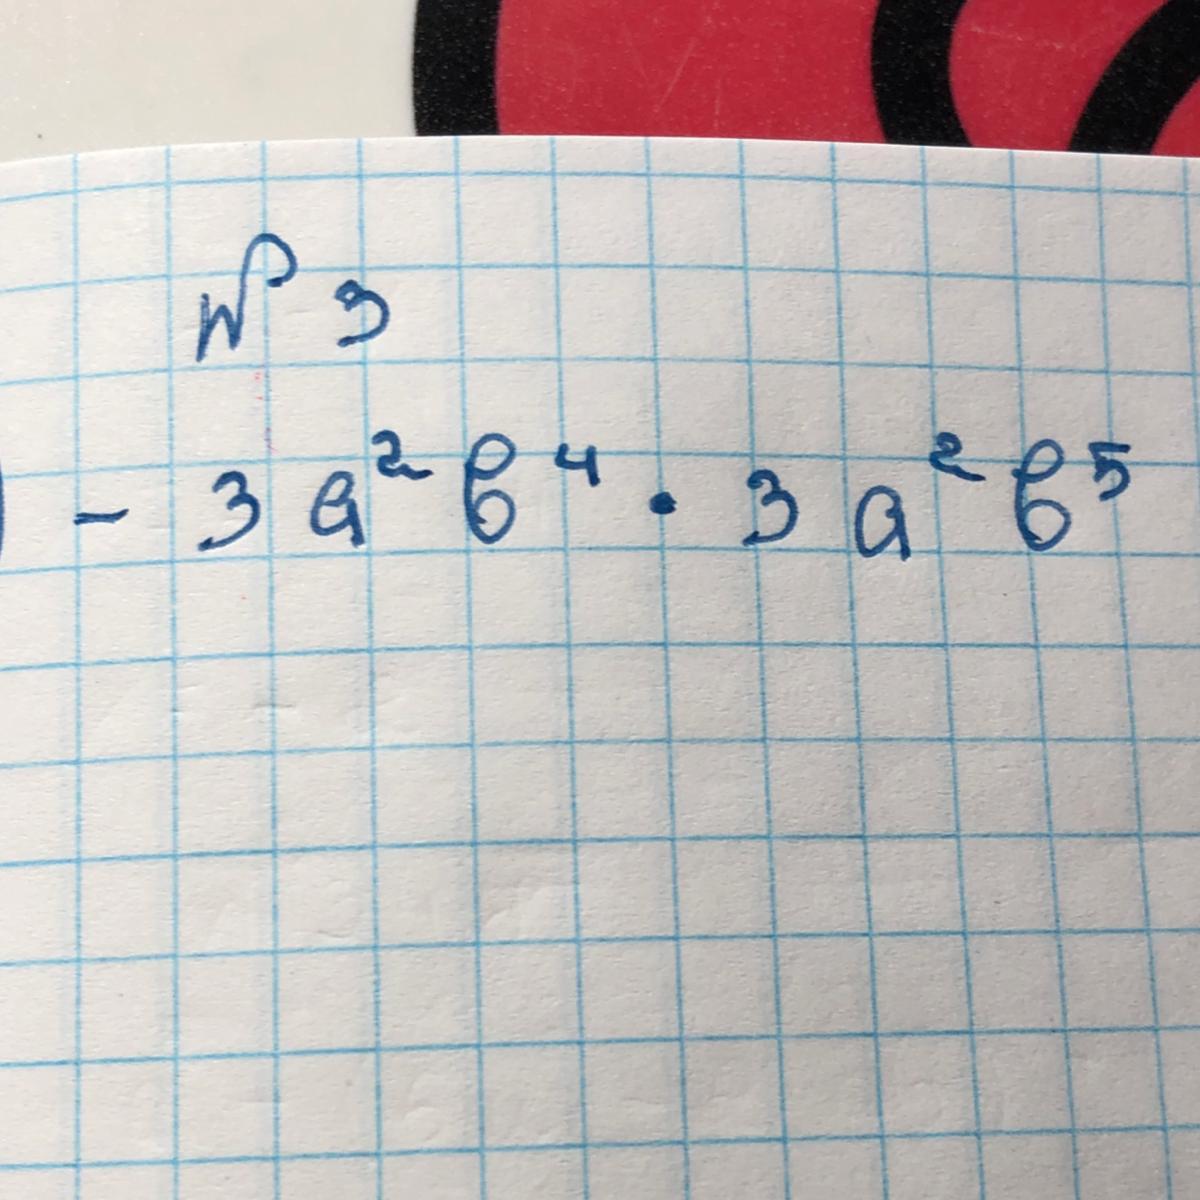 № 3
) - 3 a² b⁴ · 3 a² b⁵